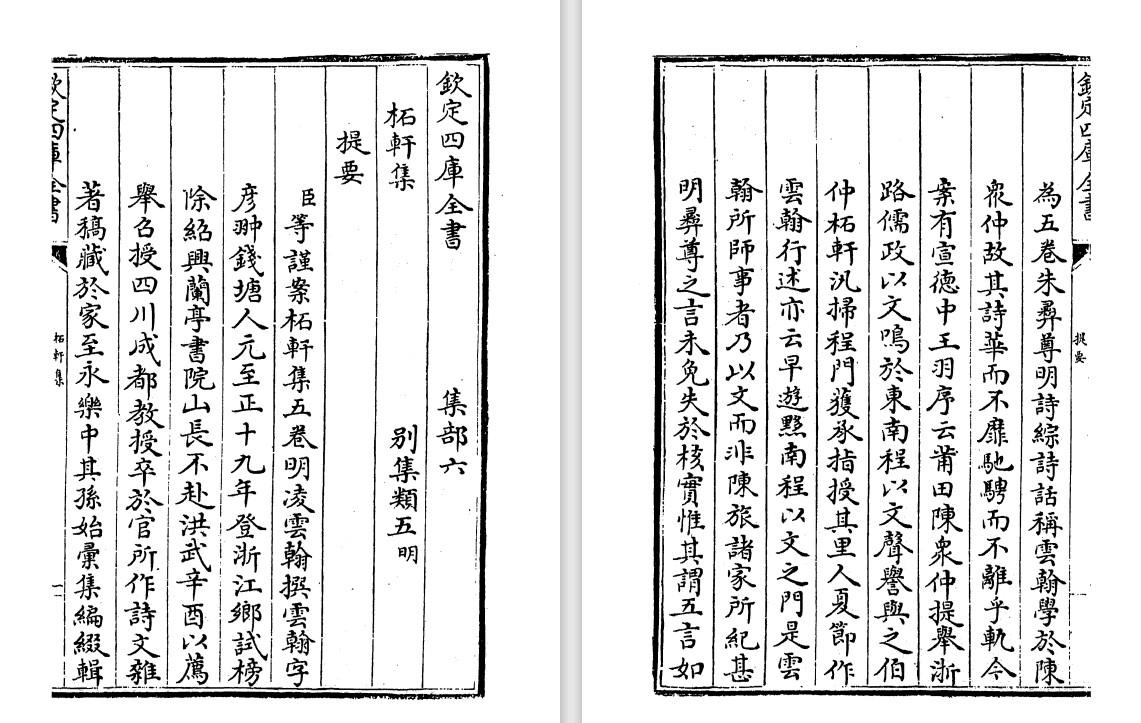 欽定四庫全書　集部六
柘軒集　別集類五明
提要
臣等謹案柘軒集五卷明凌雲翰撰雲翰字
彦翀錢塘人元至正十九年登浙江鄉試榜
除紹興蘭亭書院山長不赴洪武辛酉以薦
舉召授四川成都教授卒於官所作詩文雜
著稿藏於家至永樂中其孫始彚集編綴輯
欽定四庫全書　柘軒集　一
欽定四庫全書　提要
為五卷朱彛尊明詩綜詩話稱雲翰學於陳
衆仲故其詩華而不靡馳騁而不離乎軌今
案有宣德中王羽序云莆田陳衆仲提舉浙
路儒政以文鳴於東南程以文聲譽與之伯
仲柘軒汎掃程門獲承指授其里人夏節作
雲翰行述亦云早遊黟南程以文之門是雲
翰所師事者乃以文而非陳旅諸家所紀甚
明彛尊之言未免失於核實惟其謂五言如